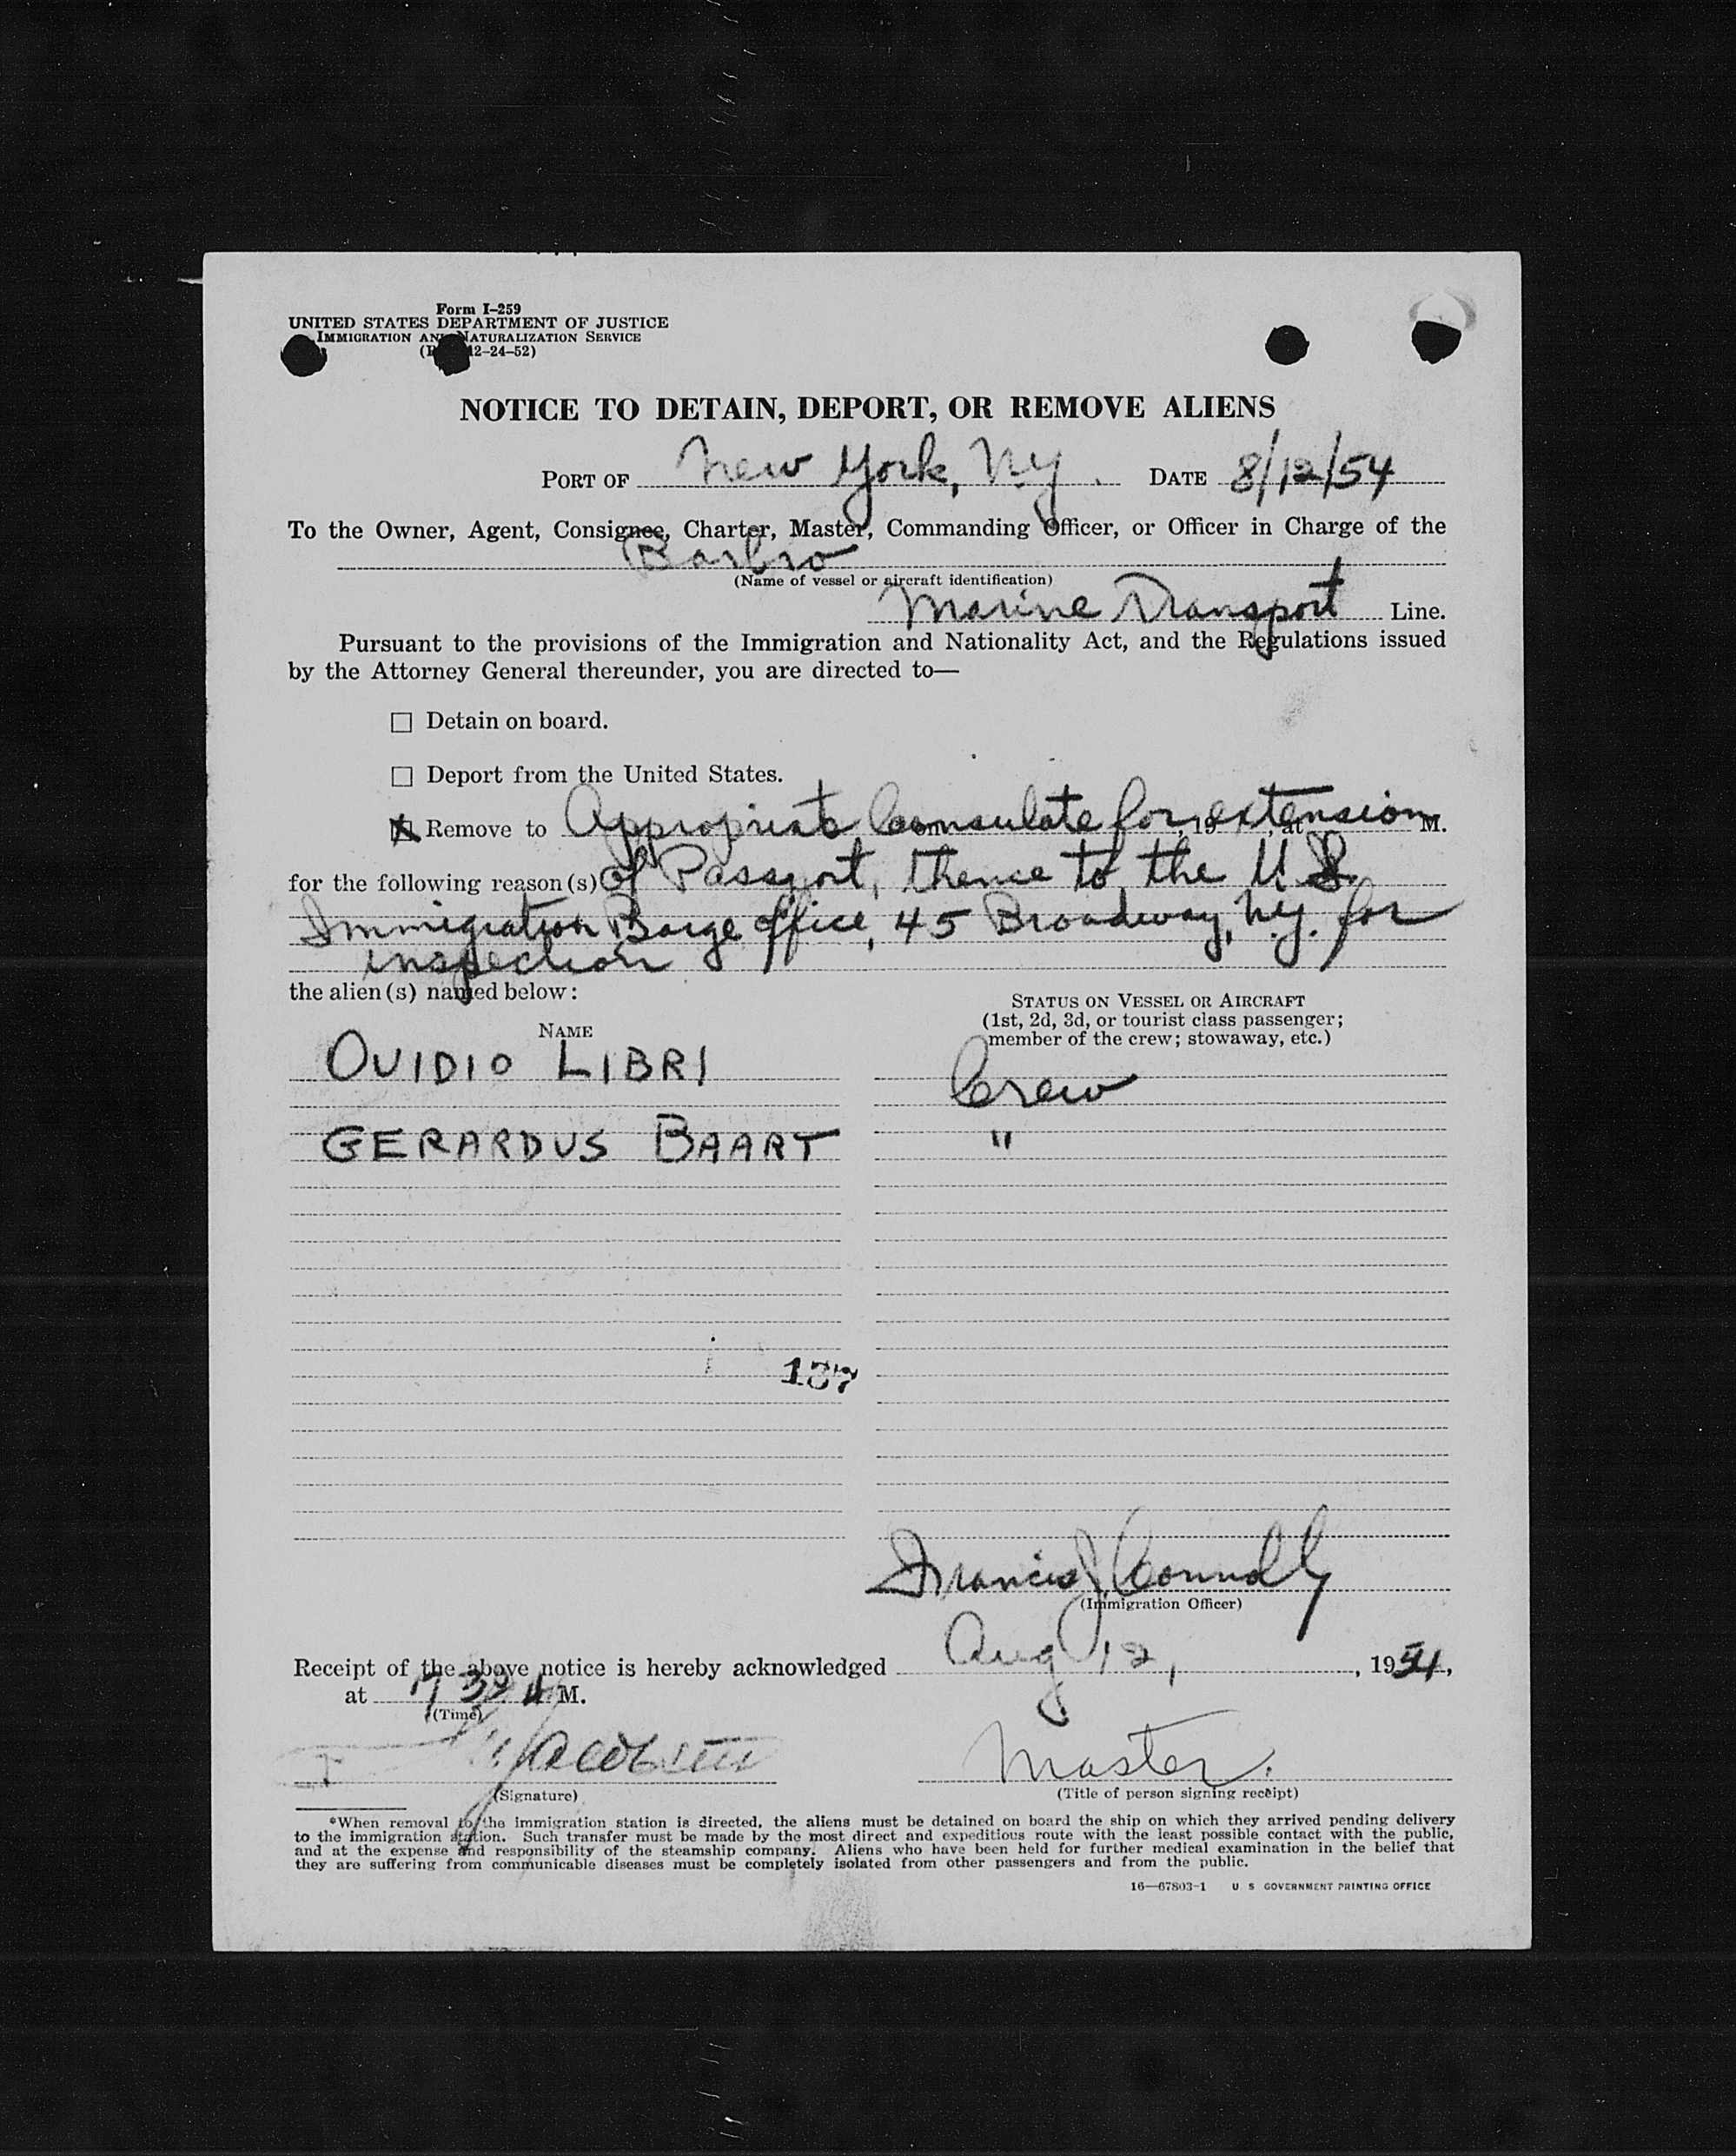 Form I-259
UNITED STATES DEPARTMENT OF JUSTICE
IMMIGRATION AND NATURALIZATION SERVICE
12-24-52)
NOTICE TO DETAIN, DEPORT, OR REMOVE ALIENS
PORT OF New York, N.Y. DATE 8/12/54
To the Owner, Agent, Consignee, Charter, Master, Commanding Officer, or Officer in Charge of the
Barbro
(Name of vessel or aircraft identification)
Marine Transport Line.
Pursuant to the provisions of the Immigration and Nationality Act, and the Regulations issued
by the Attorney General thereunder, you are directed to—
☐ Detain on board.
☐ Deport from the United States.
☒ Remove to Appropriate Consulate for extension M.
for the following reason(s) of Passport, thence to the U.S.
Immigration Barge Office, 45 Broadway, N.Y. for
inspection
the alien(s) named below:
NAME
STATUS ON VESSEL OR AIRCRAFT
(1st, 2d, 3d, or tourist class passenger;
member of the crew; stowaway, etc.)
OVIDIO LIBRI Crew
GERARDUS BAART "
137
Francis J Connolly
(Immigration Officer)
Receipt of the above notice is hereby acknowledged Aug 12, , 1954,
at M.
(Time)
Jacobsen Master.
(Signature) (Title of person signing receipt)
*When removal to the immigration station is directed, the aliens must be detained on board the ship on which they arrived pending delivery
to the immigration station. Such transfer must be made by the most direct and expeditious route with the least possible contact with the public,
and at the expense and responsibility of the steamship company. Aliens who have been held for further medical examination in the belief that
they are suffering from communicable diseases must be completely isolated from other passengers and from the public.
16—67803-1 U S GOVERNMENT PRINTING OFFICE